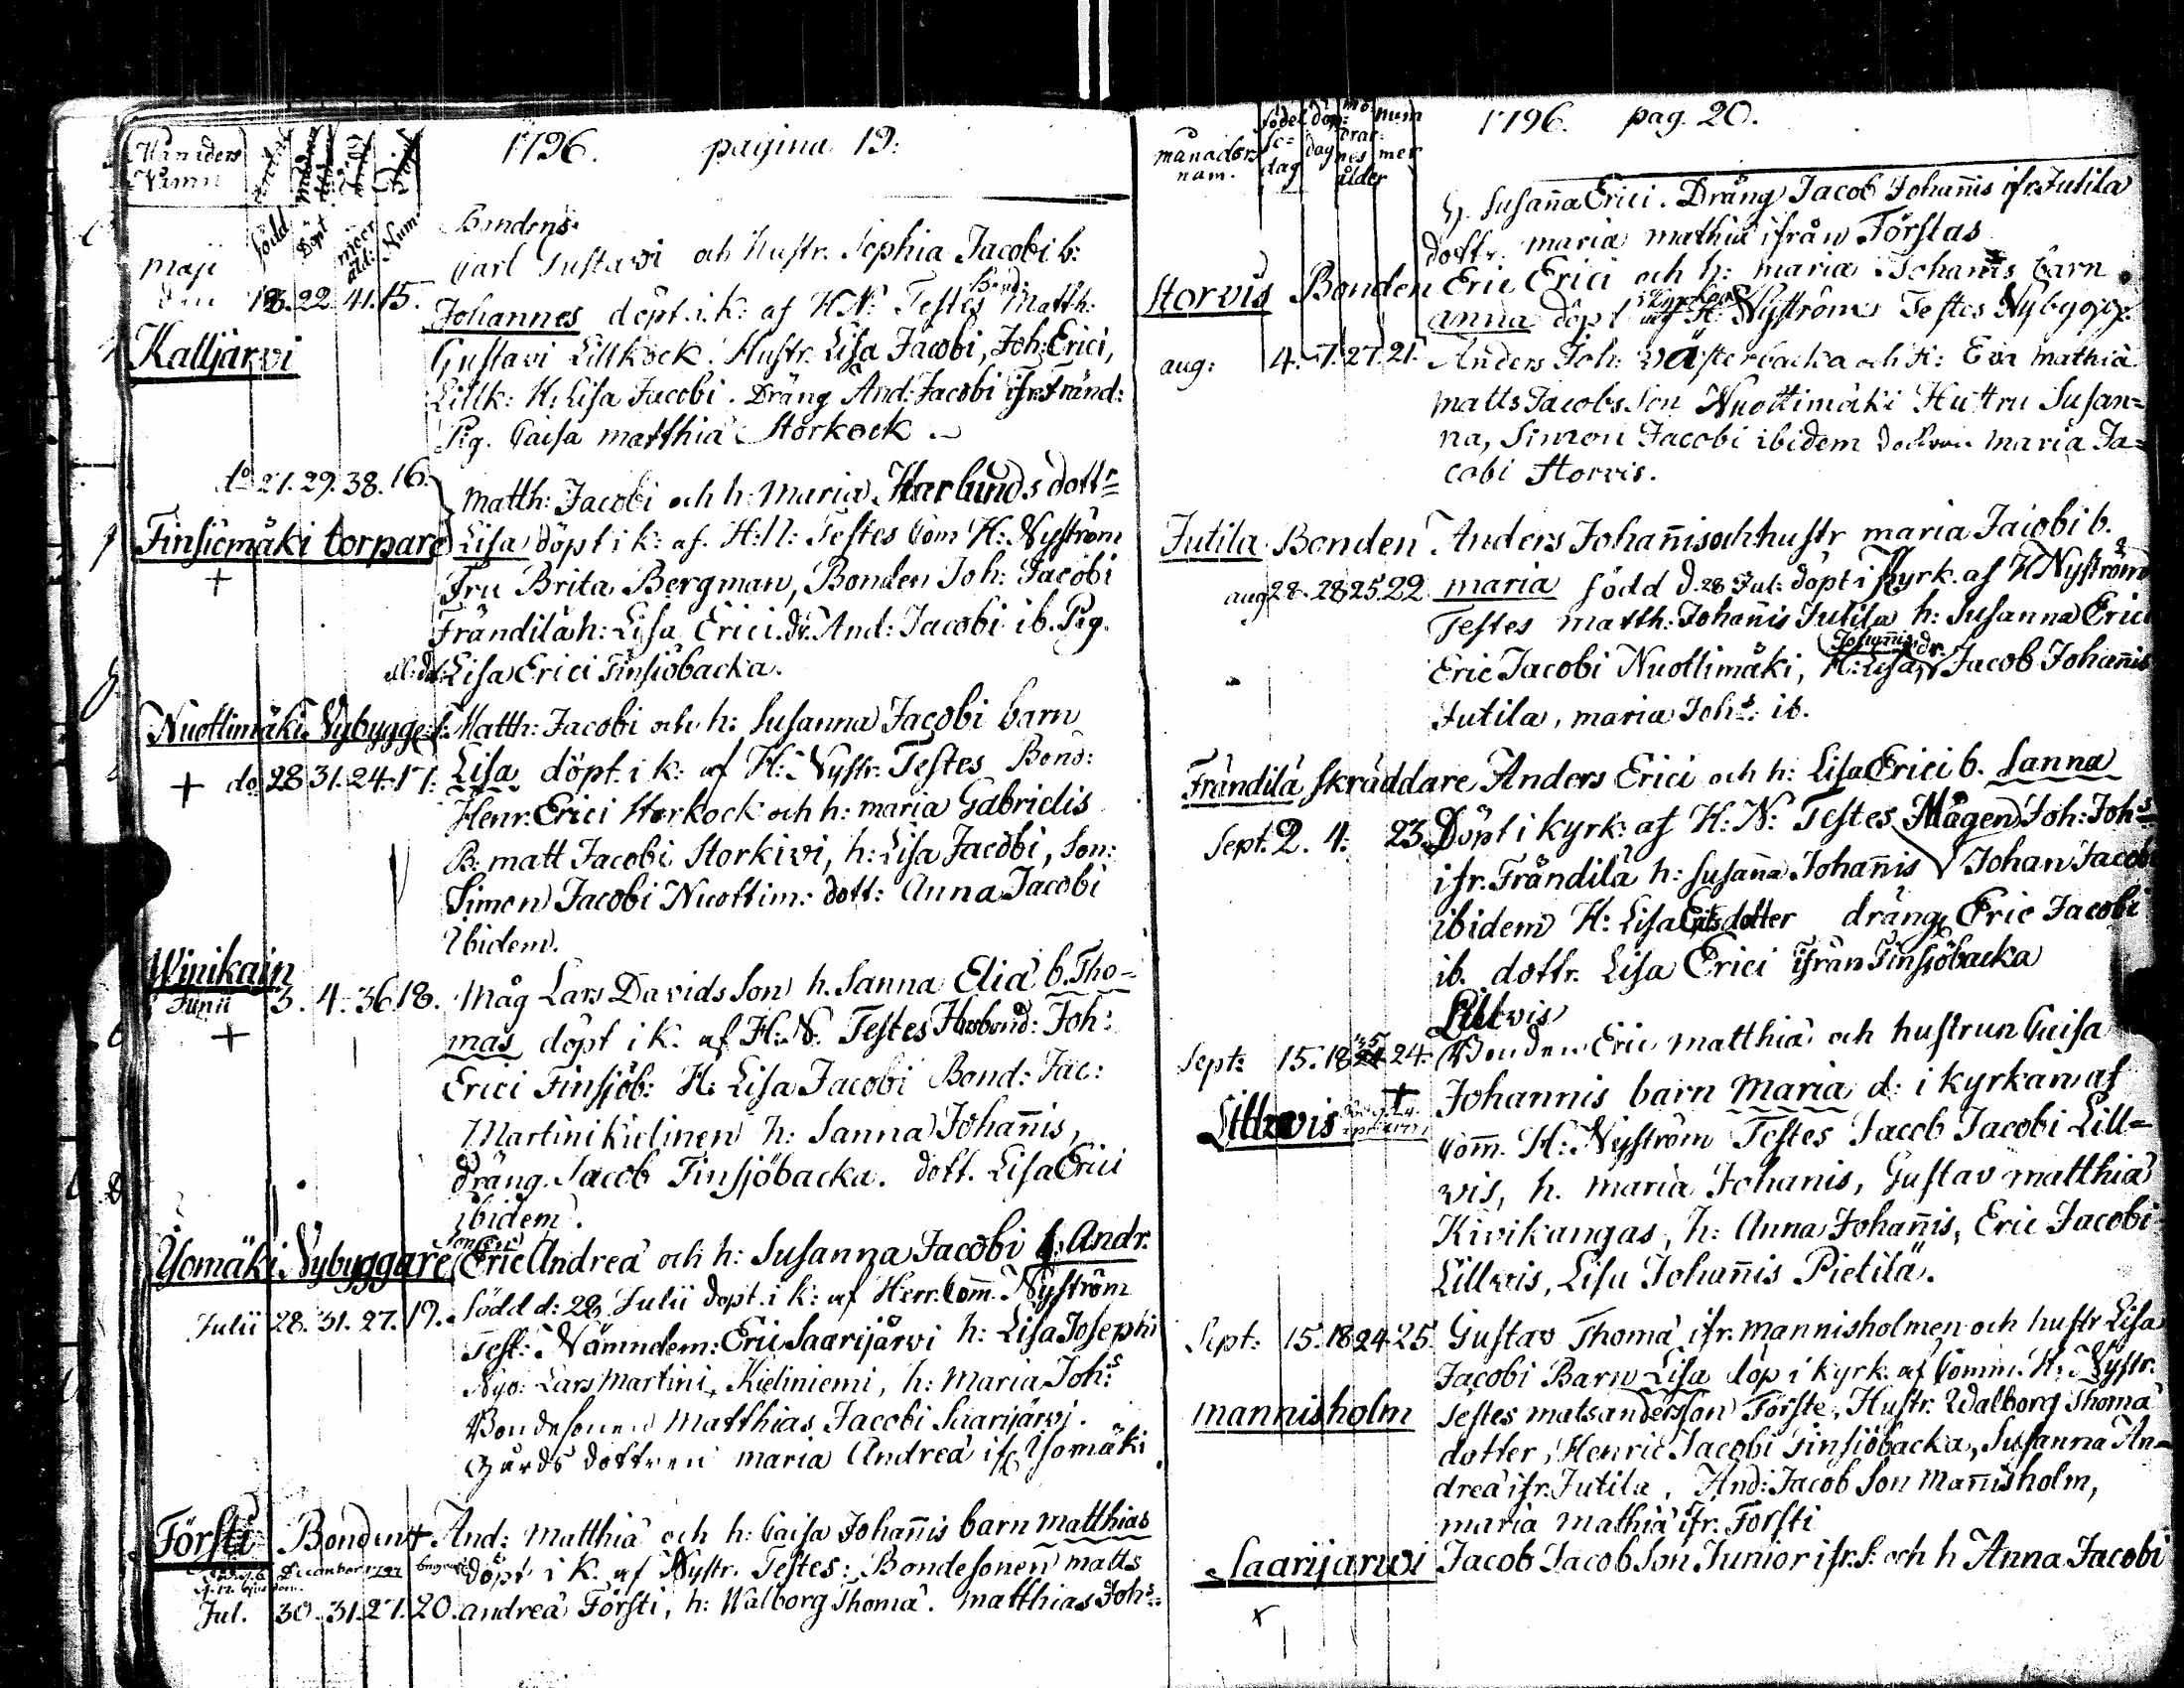 Månaders Namn
1796. pagina 19:
född Döpt möer åld: Num.
Bondens
maji
Carl Gustavi och Hustr. Sophia Jacobi b:
den 18. 22. 41. 15.
Johannes döpt. i. k: af H N: Testes Bond: Matth:
Kalljärvi
Gustavi Lillkock. Hustr. Lisa Jacobi, Joh: Erici,
Lillk: H: Lisa Jacobi. Dräng And: Jacobi ifr. Fränd:
Pig. Caisa matthiä Storkock.
do 21. 29. 38. 16.
Matth: Jacobi och h: Maria Harlunds dottr
Finsiemäki torpare
Lisa döpt i k: af. H: N: Testes Com H: Nyström
+
Fru Brita Bergman, Bonden Joh: Jacobi
Frändilä h: Lisa Erici. dr. And: Jacobi ib. Pig.
Lisa Erici Finsiöbacka.
Nuottimäki Nybygge:
Matth: Jacobi och h: Susanna Jacobi barn
+ do 28 31. 24. 17:
Lisa döpt. i k: af H: Nystr. Testes Bond:
Henr. Erici Storkock och h: maria Gabrielis
B: matt Jacobi Storkivi, h: Lisa Jacobi, Son:
Simon Jacobi Nuottim: dott: Anna Jacobi
Ibidem.
Winikain
Junii 3. 4. 36. 18.
Måg Lars Davids Son h. Sanna Eliä b. Tho-
+
mas döpt i k. af H: N. Testes Husbond: Joh:
Erici Finsjöb: H: Lisa Jacobi Bond: Jac:
Martini kielinen h: Sanna Johañis,
dräng. Jacob Finsjöbacka. dott. Lisa Erici
ibidem.
Ysomäki Nybyggare
Sonen Eric Andreä och h: Susanna Jacobi b. Andr.
Julii 28. 31. 27. 19.
född d: 28 Julii döpt. i k: af Herr. Com̄. Nyström
Test: Nämndem: Eric Saarijärvi h: Lisa Josephi
Nyb: Lars Martini, Kieliniemi, h: Maria Joh:s
Bondesonen Matthias Jacobi Saarijärvi.
Gårds dottren maria Andreä if. Ysomäki
Försti Bonden +
And: Matthiä och h: Caisa Johañis barn matthias
December 1797 begraf
döpt i k. af Nystr. Testes: Bondesonen matts
Jul. 30. 31. 27. 20.
andreä Försti, h: Walborg Thomä. Matthias Joh:s
månaders nam.
födel se= dag dop: dag mo drar nes ålder num mer
1796. pag. 20.
h. Susaña Erici. Dräng Jacob Johañis ifr. Jutila
dottr. maria mathiä ifrån Förstas
Storvis Bonden Eric Erici och h: maria Johanis barn
anna döpt i kyrkan af H: Nyström Testes Nybygg:
aug: 4. 7. 27. 21.
Anders Joh: wästerbacka och H: Eva mathiä
matts Jacobs Son Nuottimäki Hustru Susan=
na, Simon Jacobi ibidem dottren maria Ja=
cobi Storvis.
Jutila Bonden Anders Johañis och hustr maria Jacobi b.
aug 28. 28 25. 22
maria född d. 28 Jul: döpt i Kyrk. af H Nyström
Testes matth: Johañis Jutila h: Susanna Erici
Eric Jacobi Nuottimäki, H: Lisa Johañis dr. Jacob Johañis
Jutila, maria Joh:s ib.
Frändilä Skräddare Anders Erici och h: Lisa Erici b. Sanna
Sept. 2. 4. 23.
Döpt i kyrk: af H: N: Testes Mågen Joh: Joh:s
ifr. Frändilä h: Susaña Johañis Johan Jacobi
ibidem H: Lisa Ericsdotter dräng Eric Jacobi
ib. dottr. Lisa Erici ifrån Finsjöbacka
Lillvis
Sept: 15. 18 45 24.
Bonden Eric matthiä och hustrun Caisa
+
Johannis barn Maria d: i kyrkan af
Lillvis
Com̄. H: Nyström Testes Jacob Jacobi Lill=
vis, h. maria Johanis, Gustav matthiä
Kivikangas, h: Anna Johañis, Eric Jacobi
Lillvis, Lisa Johañis Pietilä.
Sept: 15. 18 24 25.
Gustav Thomä ifr. Mannisholmen och hustr Lisa
Jacobi Barn Lisa döp i kyrk. af Comm. H: Nystr.
mannisholm
Testes mats andersson Förste, Hustr. Walborg Thomä
dotter, Henric Jacobi Finsiöbacka, Susanna An-
dreä ifr. Jutila, And: Jacob Son Mañisholm,
maria mathiä ifr. Försti
Saarijarvi
Jacob Jacob Son Junior ifr. S. och h Anna Jacobi
+